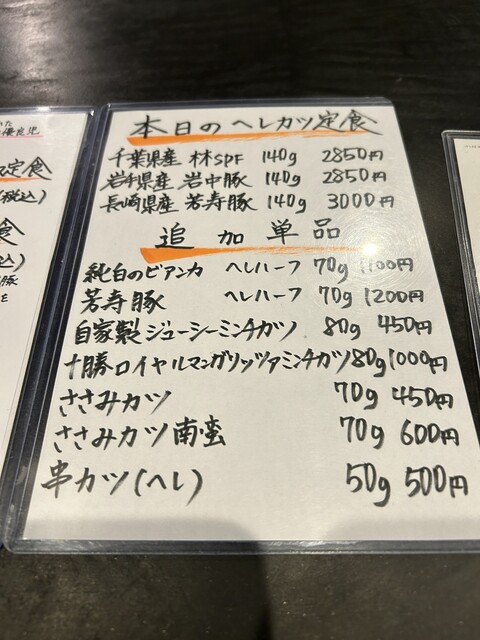 本日のヘレカツ定食
千葉県産 林SPF 140g 2850円
岩手県産 岩中豚 140g 2850円
長崎県産 芳寿豚 140g 3000円
追加単品
純白のビアンカ ヘレハーフ 70g 1100円
芳寿豚 ヘレハーフ 70g 1200円
自家製ジューシーミンチカツ 80g 450円
十勝ロイヤルマンガリッツァミンチカツ 80g 1000円
ささみカツ 70g 450円
ささみカツ南蛮 70g 600円
串カツ(ヘレ) 50g 500円
定食
(税込)
食
込)
豚
を